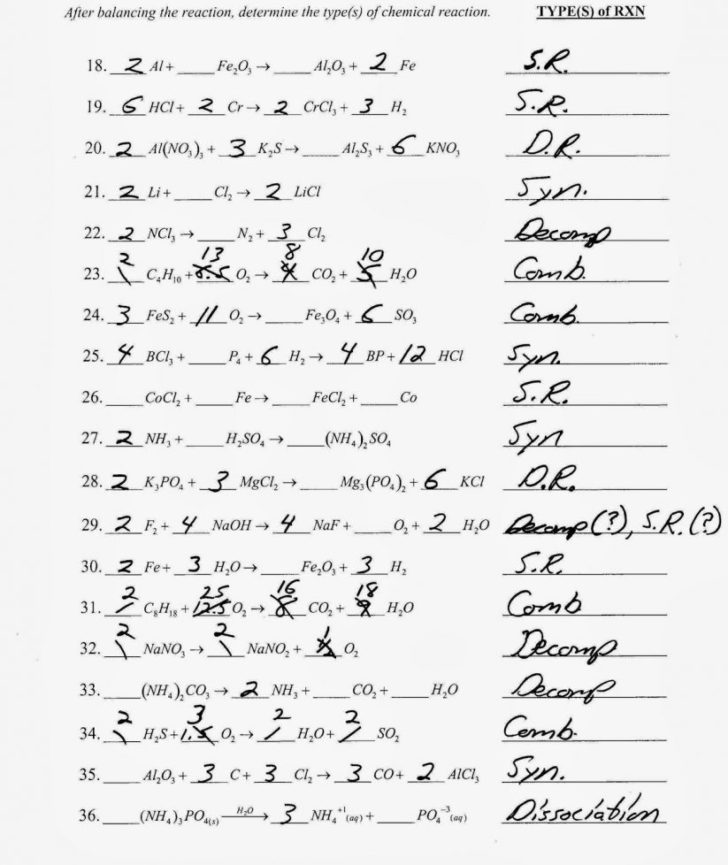 After balancing the reaction, determine the type(s) of chemical reaction. TYPE(S) of RXN
18. 2 Al + ___ Fe₂O₃ → ___ Al₂O₃ + 2 Fe S.R.
19. 6 HCl + 2 Cr → 2 CrCl₃ + 3 H₂ S.R.
20. 2 Al(NO₃)₃ + 3 K₂S → ___ Al₂S₃ + 6 KNO₃ D.R.
21. 2 Li + ___ Cl₂ → 2 LiCl Syn.
22. 2 NCl₃ → ___ N₂ + 3 Cl₂ Decomp
23. 2 C₄H₁₀ + 13 O₂ → 8 CO₂ + 10 H₂O Comb.
24. 3 FeS₂ + 11 O₂ → ___ Fe₃O₄ + 6 SO₃ Comb.
25. 4 BCl₃ + ___ P₄ + 6 H₂ → 4 BP + 12 HCl Syn.
26. ___ CoCl₂ + ___ Fe → ___ FeCl₂ + ___ Co S.R.
27. 2 NH₃ + ___ H₂SO₄ → ___ (NH₄)₂SO₄ Syn
28. 2 K₃PO₄ + 3 MgCl₂ → ___ Mg₃(PO₄)₂ + 6 KCl D.R.
29. 2 F₂ + 4 NaOH → 4 NaF + ___ O₂ + 2 H₂O Decomp(?), S.R.(?)
30. 2 Fe + 3 H₂O → ___ Fe₂O₃ + 3 H₂ S.R.
31. 2 C₈H₁₈ + 25 O₂ → 16 CO₂ + 18 H₂O Comb
32. 2 NaNO₃ → 2 NaNO₂ + 1 O₂ Decomp
33. ___ (NH₄)₂CO₃ → 2 NH₃ + ___ CO₂ + ___ H₂O Decomp
34. 2 H₂S + 3 O₂ → 2 H₂O + 2 SO₂ Comb.
35. ___ Al₂O₃ + 3 C + 3 Cl₂ → 3 CO + 2 AlCl₃ Syn.
36. ___ (NH₄)₃PO₄(s) H₂O → 3 NH₄⁺¹(aq) + ___ PO₄⁻³(aq) Dissociation